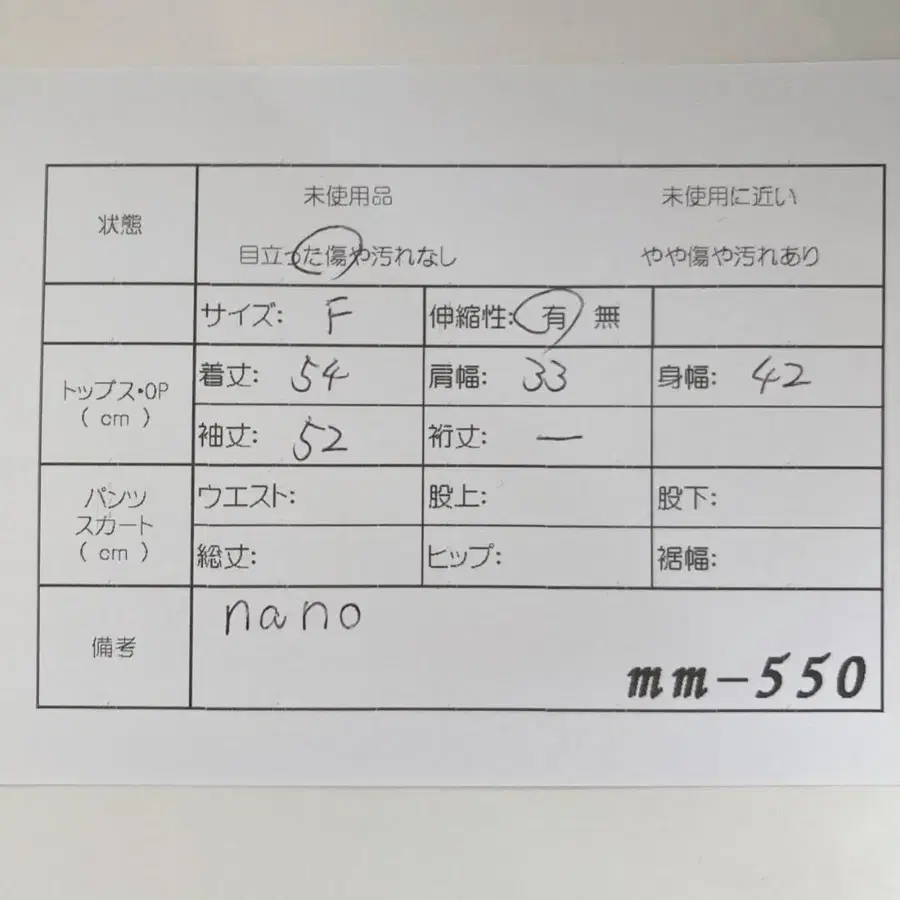 状態
未使用品 未使用に近い
目立った傷や汚れなし やや傷や汚れあり
サイズ: F 伸縮性: 有 無
トップス・OP
( cm )
着丈: 54 肩幅: 33 身幅: 42
袖丈: 52 裄丈: ー
パンツ
スカート
( cm )
ウエスト: 股上: 股下:
総丈: ヒップ: 裾幅:
備考
nano
mm-550